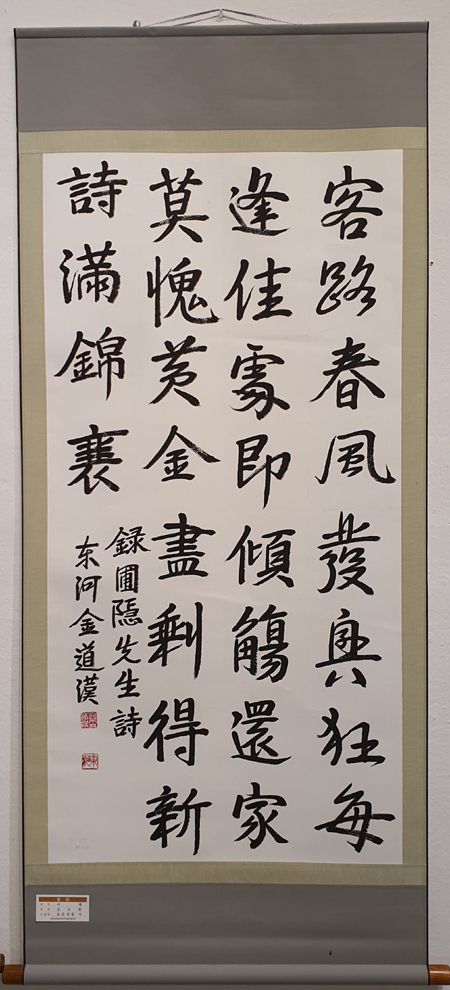 客路春風發興狂每
逢佳處即傾觴還家
莫愧黃金盡剩得新
詩滿錦囊
録圃隱先生詩
东河金道漢